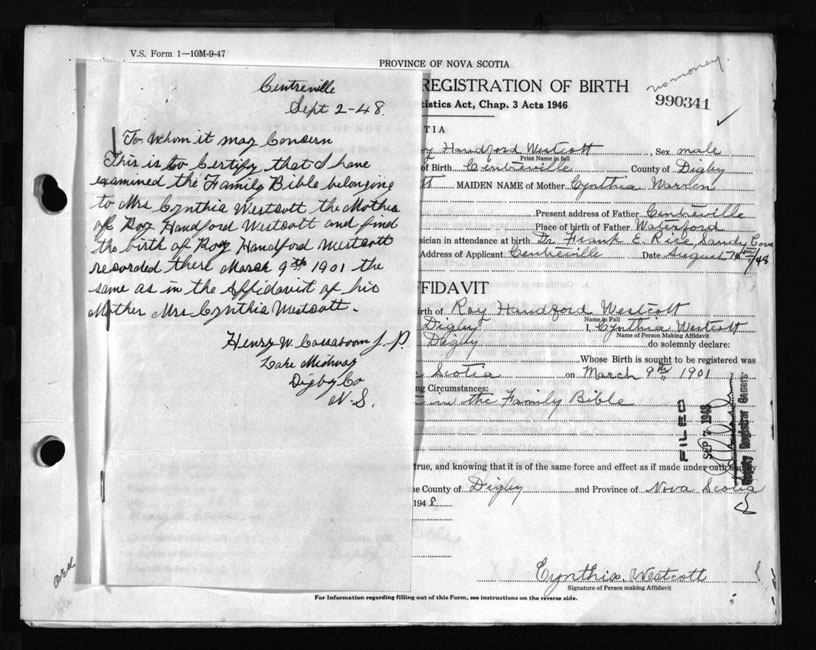 V.S. Form 1—10M-9-47
PROVINCE OF NOVA SCOTIA
REGISTRATION OF BIRTH
no money.
990341
tistics Act, Chap. 3 Acts 1946
Centreville
Sept 2-48.
To Whom it may Concern
This is to Certify that I have
examined the Family Bible belonging
to Mrs Cynthia Westcott the Mother
of Roy Handford Westcott and find
the birth of Roy Handford Westcott
recorded there March 9th 1901 the
same as in the Affidavit of his
Mother Mrs Cynthia Westcott.
Henry W. Cossaboom J.P.
Lake Midway
Digby Co
N.S.
TIA
y Handford Westcott, Sex male
Print Name in full
of Birth Centreville County of Digby
tt MAIDEN NAME of Mother Cynthia Warren
Present address of Father Centreville
Place of birth of Father Waterford
sician in attendance at birth Dr. Frank E. Rice, Sandy Cove
Address of Applicant Centreville Date August 7th/48
FFIDAVIT
irth of Roy Handford Westcott
Name in Full
Digby I, Cynthia Westcott
Name of Person Making Affidavit
Digby do solemnly declare:
Whose Birth is sought to be registered was
Scotia on March 9th, 1901
ng Circumstances:
in the Family Bible
FILED
SEP 7 1948
Deputy Registrar General
true, and knowing that it is of the same force and effect as if made under oath
e County of Digby and Province of Nova Scotia
1948
Cynthia Westcott
Signature of Person making Affidavit
For Information regarding filling out of this Form, see instructions on the reverse side.